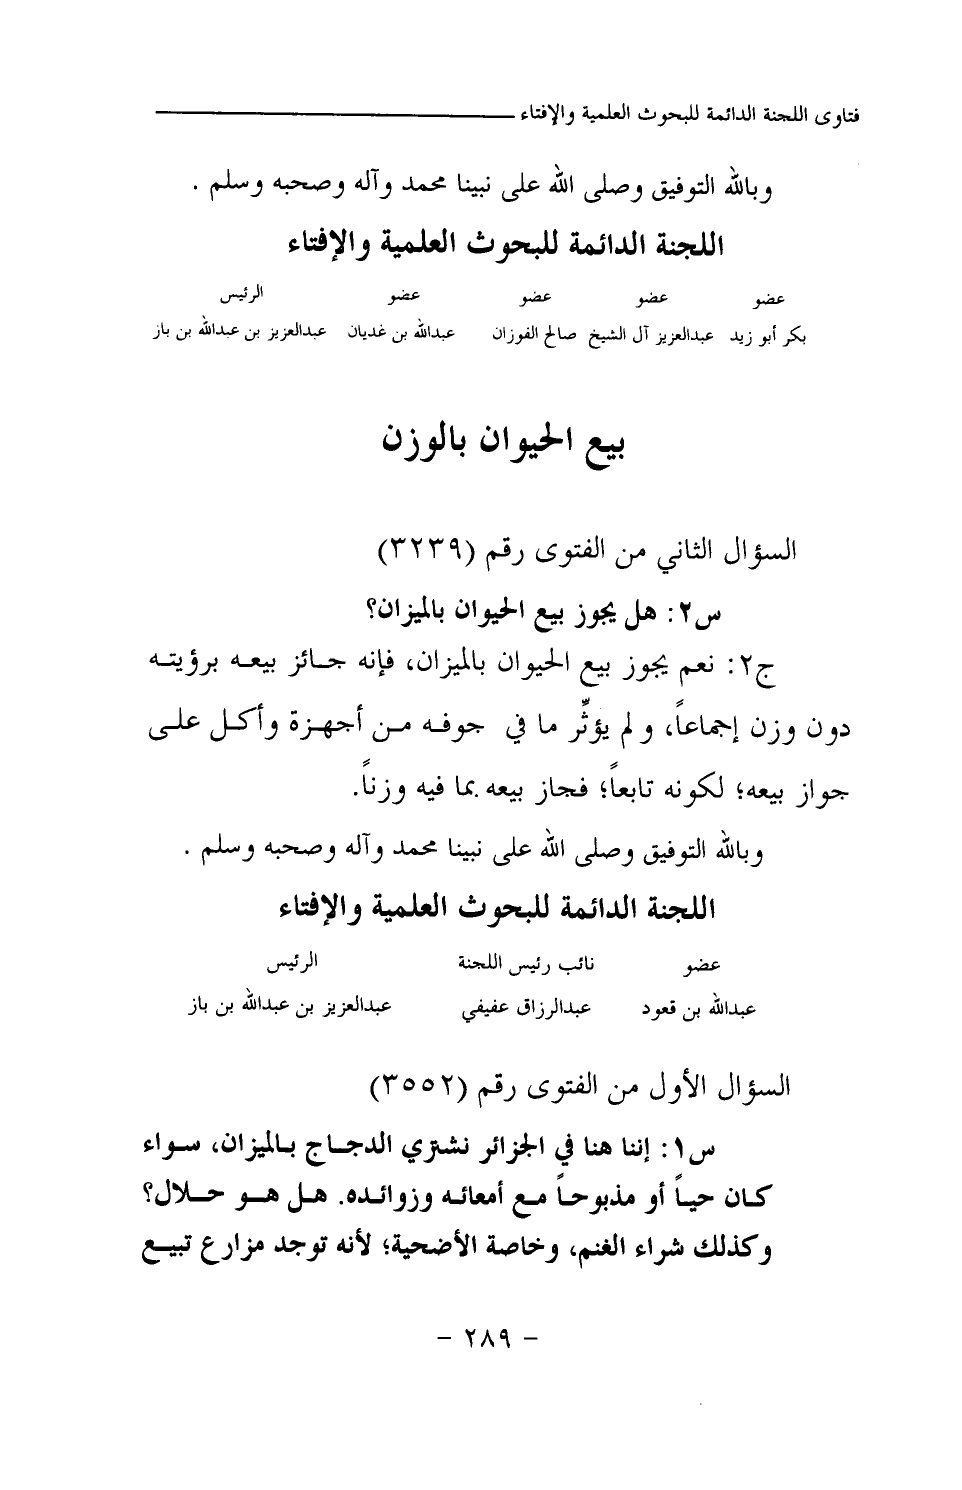 فتاوى اللجنة الدائمة للبحوث العلمية والإفتاء
وبالله التوفيق وصلى الله على نبينا محمد وآله وصحبه وسلم .
اللجنة الدائمة للبحوث العلمية والإفتاء
عضو عضو عضو عضو الرئيس
بكر أبو زيد عبدالعزيز آل الشيخ صالح الفوزان عبدالله بن غديان عبدالعزيز بن عبدالله بن باز
بيع الحيوان بالوزن
السؤال الثاني من الفتوى رقم (٣٢٣٩)
س٢: هل يجوز بيع الحيوان بالميزان؟
ج٢: نعم يجوز بيع الحيوان بالميزان، فإنه جائز بيعه برؤيته
دون وزن إجماعاً، ولم يؤثِّر ما في جوفه من أجهزة وأكل على
جواز بيعه؛ لكونه تابعاً؛ فجاز بيعه بما فيه وزناً.
وبالله التوفيق وصلى الله على نبينا محمد وآله وصحبه وسلم .
اللجنة الدائمة للبحوث العلمية والإفتاء
عضو نائب رئيس اللجنة الرئيس
عبدالله بن قعود عبدالرزاق عفيفي عبدالعزيز بن عبدالله بن باز
السؤال الأول من الفتوى رقم (٣٥٥٢)
س١: إننا هنا في الجزائر نشتري الدجاج بالميزان، سواء
كان حياً أو مذبوحاً مع أمعائه وزوائده. هل هو حلال؟
وكذلك شراء الغنم، وخاصة الأضحية؛ لأنه توجد مزارع تبيع
- ٢٨٩ -